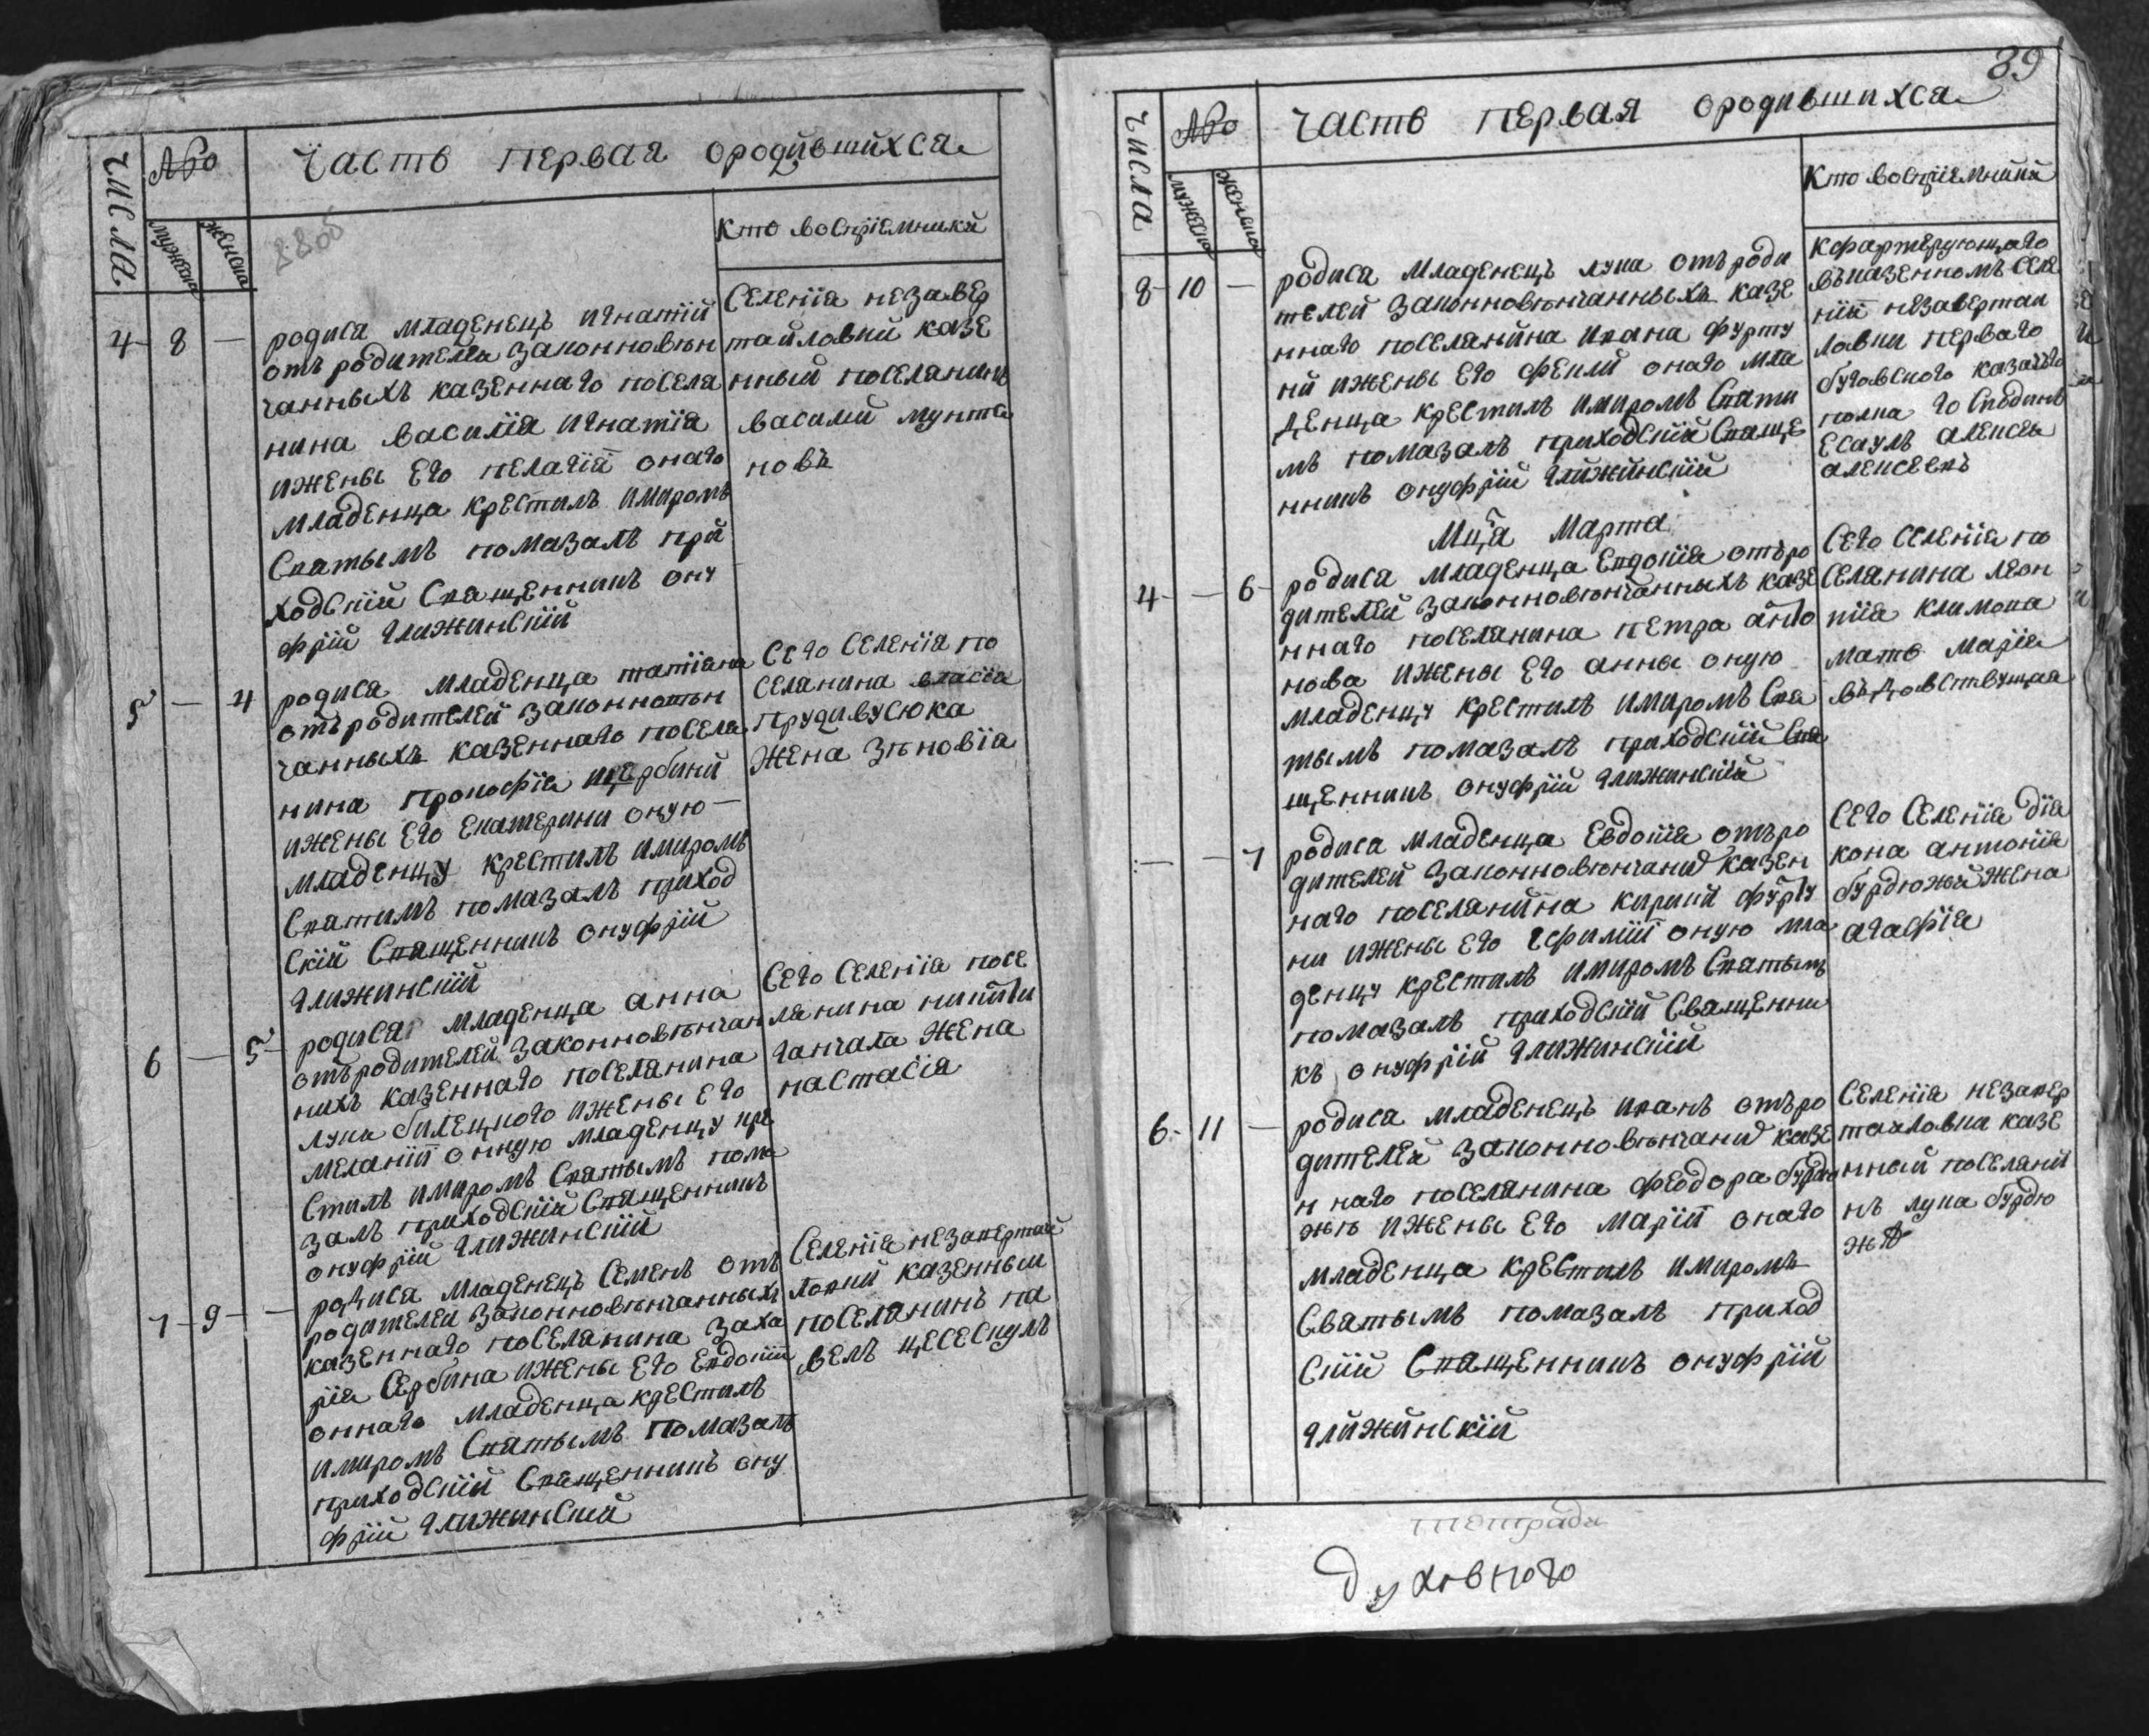 Часть первая ородившихся
числа
№
мужеска
женска
88об
Кто восприемники
4 8 —
родися младенецъ игнатій
отъ родителей законновѣн
чанныхъ казеннаго поселя
нина василія игнатія
ижены его пелагіи онаго
младенца крестилъ имиромъ
святымъ помазалъ при
ходскій священникъ ону
фрій глижинскій
Селенія незавер
тайловки казе
нный поселянинъ
василий мунтя
новъ
5 — 4
родися младенца татіяна
отъ родителей законновѣн
чанныхъ казеннаго поселя
нина прокофія щербини
ижены его екатерини оную
младенцу крестилъ имиромъ
святимъ помазалъ приход
скій священникъ онуфрій
глижинскій
Сего селенія по
селянина власія
прудивусюка
жена зѣновія
6 — 5
родися младенца анна
отъ родителей законновѣнчан
нихъ казеннаго поселянина
луки билецкого ижены его
меланіи онную младенцу кре
стилъ имиромъ святымъ пома
залъ приходскій священникъ
онуфрій глижинскій
Сего селенія посе
лянина никиты
ганчата жена
настасія
7 9 —
родися младенецъ семенъ отъ
родителей законновѣнчанныхъ
казеннаго поселянина заха
рія сербина ижены его евдокіи
оннаго младенца крестилъ
имиромъ святымъ помазалъ
приходскій священникъ ону
фрій глижинскій
Селенія незавертай
ловки казенный
поселянинъ па
велъ цесескулъ
89
Часть первая ородившихся
числа
№
мужеска
женска
Кто восприемники
8 10 —
родися младенецъ лука отъ роди
телей законновѣнчанныхъ казе
ннаго поселянина ивана фурту
ни ижены его фенли онаго мла
денца крестилъ имиромъ святи
мъ помазалъ приходскій свяще
нникъ онуфрій глижинскій
Кфартерующаго
въказенномъ селе
ніи незавертаи
ловки перваго
бугвского казачого
полка го сподинъ
есаулъ алексѣй
алексеевъ
Мца Марта
4 — 6
родися младенца Евдокія отъро
дителей законновѣнчанныхъ казе
ннаго поселянина петра анто
нова ижены его анны оную
младенцу крестилъ имиромъ свя
тымъ помазалъ приходскій свя
щенникъ онуфрій глижинскій
Сего селенія по
селянина леон
тія климова
мать марія
въдовствущая
— — 7
родися младенца Евдокія отъро
дителей законновѣнчаних казен
наго поселянина кирики фурту
ни ижены его ефиміи оную мла
денцу крестилъ имиромъ святымъ
помазалъ приходскій священни
къ онуфрій глижинскій
Сего селенія дія
кона антонія
бурдюжи жена
агафія
6 11 —
родися младенецъ иванъ отъро
дителей законновѣнчаних казе
ннаго поселянина феодора бурдю
жѣ ижены его маріи онаго
младенца крестилъ имиромъ
святымъ помазалъ приход
скій священникъ онуфрій
глижинскій
Селенія незавер
таиловки казе
нный поселяни
нъ лука бурдю
жѣ
тетради
духовного